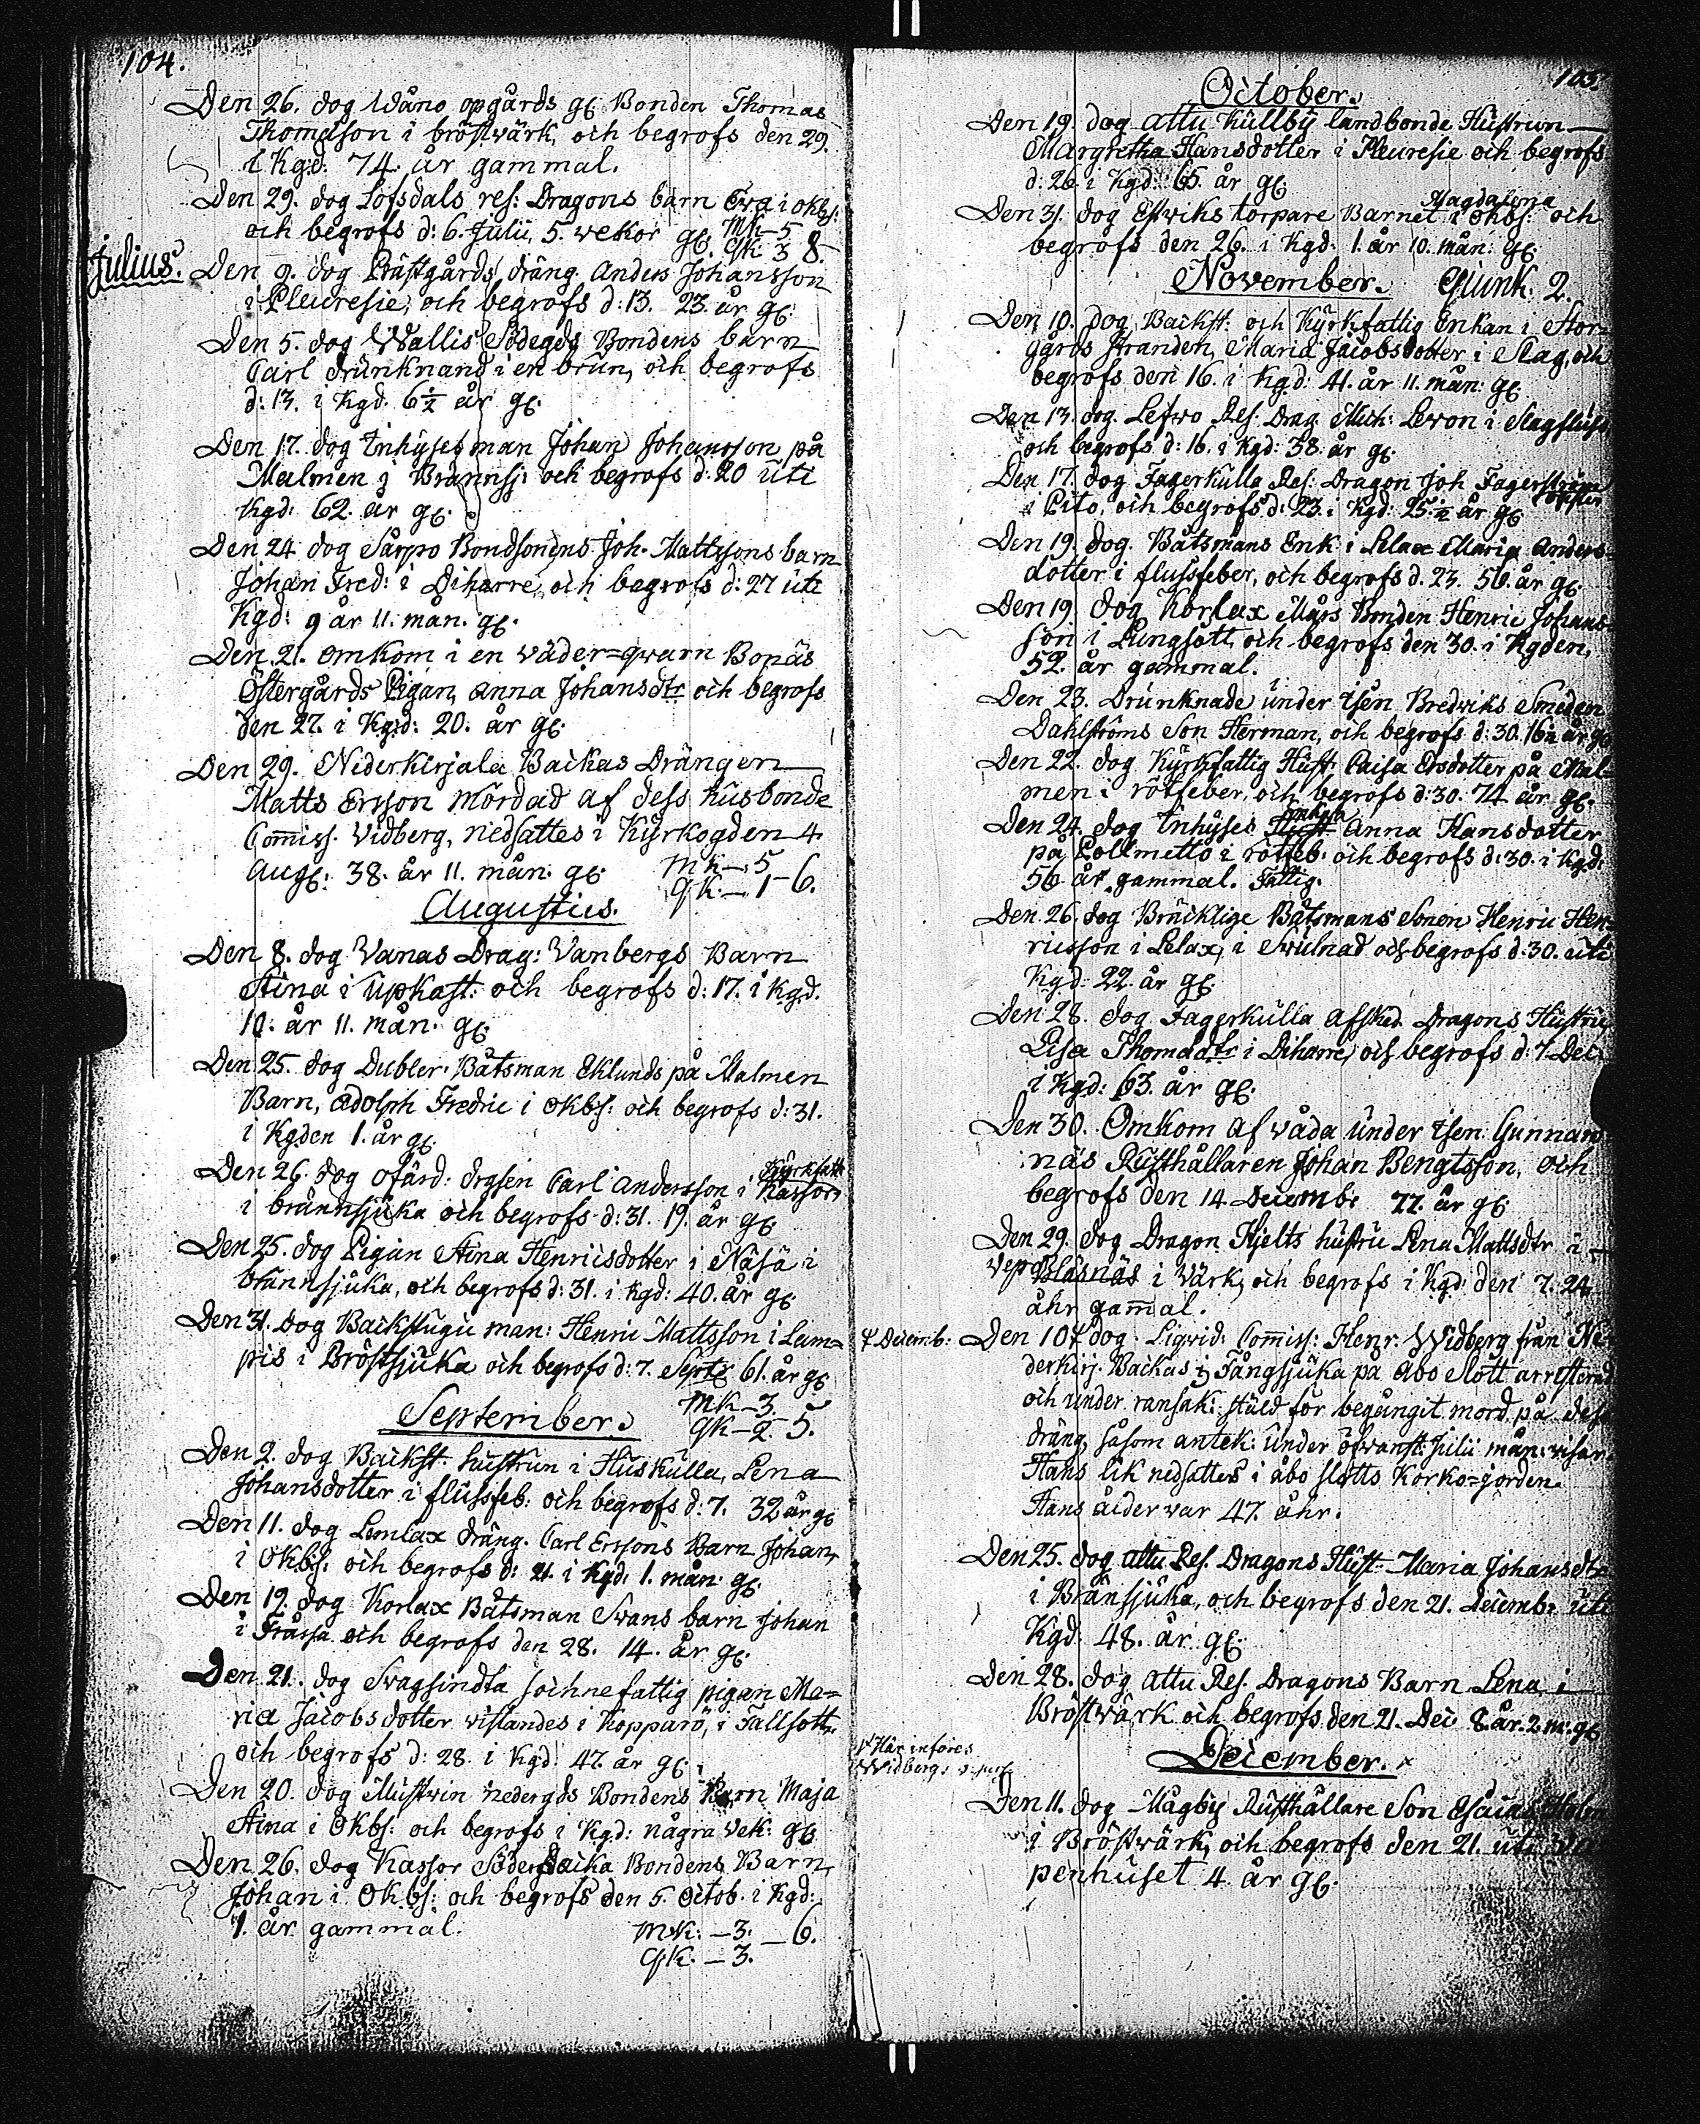 104.
Den 26. dog Våno opgårds gl. Bonden Thomas
Thomasson i bröstwärk, och begrofs den 29.
i Kgd. 74 år gammal.
Den 29. dog Lofsdals res: Dragons barn Eva i okbs:
och begrofs d: 6. Julii, 5. wekor gl. Mk - 5
qk. 3 8.
Julius.
Den 9. dog Prästgårds dräng Anders Johansson
i Pleuresie, och begrofs d: 13. 23. år gl.
Den 5. dog Wallis Södegds Bondens barn
Carl drunknand i en brun, och begrofs
d: 13. i Kgd. 6½ år gl.
Den 17. dog Inhyses man Johan Johansson på
Malmen i Brännsj: och begrofs d. 20 uti
Kgd: 62. år gl.
Den 24 dog Sårpo Bondsonens Joh. Mattssons barn
Johan Fred: i Diharre, och begrofs d: 27 uti
Kgd: 9 år 11. mån. gl.
Den 21. omkom i en väder=qwarn Bonäs
Östergårds Pigan, Anna Johansdtr och begrofs
den 27. i Kgd: 20. år gl.
Den 29. Nederkirjala Backas Drängen
Matts Ersson mördad af dess husbonde
Commiss. Widberg, nedsattes i Kyrkogden 4.
Aug: 38. år 11. mån. gl. Mk - 5
qk. - 1 - 6.
Augustus.
Den 8. dog Vanas Drag: Vanbergs Barn
Stina i Upkast: och begrofs d: 17. i kgd.
10. år 11. mån. gl.
Den 25. dog Dubler. Båtsman Eklunds på Malmen
Barn, Adolph Fredric i okbs: och begrofs d: 31.
i Kgden 1. år gl.
Den 26 dog ofärd: drgsen Carl Andersson i Kassor, Kyrkfatt
i brännsjuka och begrofs d: 31. 19. år gl.
Den 25. dog Pigan Stina Henricsdotter i Näsä i
brännsjuka, och begrofs d: 31. i kgd: 40. år gl.
Den 31. dog Backstugu man: Henric Mattsson i Lem=
pis i Bröstsjuka och begrofs d: 7. Septr 61. år gl
Mk - 3
qk - 2 5.
September.
Den 2. dog Backst. hustrun i Huskulla, Lena
Johansdotter i flussfeb: och begrofs d: 7. 32 år gl
Den 11. dog Lemlax dräng. Carl Erssons Barn Johan,
i Okbs: och begrofs d: 21. i Kgd: 1. mån. gl.
Den 19. dog Korlax Båtsman Svans barn Johan
i Fråssa och begrofs den 28. 14. år gl.
Den 21. dog Svagsindta sochnefattig pigan Ma=
ria Jacobsdotter wistandes i Kopparö, i Fallsott,
och begrofs d: 28. i Kgd: 47. år gl.
Den 20. dog Mustwin nedergds Bondens Barn Maja
Stina i Okbs: och begrofs i Kgd: några vek: gl
Den 26. dog Kassor Söderbacka Bondens Barn,
Johan i Okbs: och begrofs den 5. Octob. i Kgd:
1. år gammal. Mk: - 3. - 6.
qk. - 3.
105.
October.
Den 19. dog Attu Küllby landbonde Hustrun
Margretha Hansdotter i Pleuresie och begrofs
d: 26 i Kgd: 65. år gl.
Magdalena
Den 31. dog Elwiks torpare Barnet i okbs: och
begrofs den 26. i Kgd: 1. år 10. mån: gl.
November. qvink. 2.
Den 10. dog Backst. och Kyrkfattig Enkan i Stor=
gårds Stranden, Maria Jacobsdotter i Slag, och
begrofs den 16. i Kgd: 41. år 11. mån: gl.
Den 13. dog Lefwo Res. Drag. Mich: Levon i Slagfluss,
och begrofs d: 16. i Kgd: 38. år gl.
Den 17. dog Fagerkulla Res: Dragon Joh Fagerström
i Pito, och begrofs d: 23. i Kgd: 25.½ år gl
Den 19. dog Båtsmans Enk: i Lelax Maria Anders=
dotter i flussfeber, och begrofs d. 23. 56. år gl.
Den 19. dog Korlax Mårs Bonden Henric Johans=
son i Lungsott, och begrofs den 30. i Kgden,
52. år gammal.
Den 23. Drunknade under isen Bredviks Smeden
Dahlströms Son Herman, och begrofs d: 30. 16½ år gl
Den 22. dog Kyrkfattig Hust: Caisa Ersdotter på Mal=
men i rötfeber, och begrofs d: 30. 74 år gl.
Enkan
Den 24. dog Inhyses Hust: Anna Hansdotter
på Pollmetto i rötfeb: och begrofs d: 30. i Kgd:
56 år gammal. Fattig.
Den 26. dog Bräcklige Båtsmans Sonen Henric Hen=
ricsson i Lelax, i swulnad och begrofs d: 30. uti
Kgd: 22. år gl.
Den 28. dog Fagerkulla afsked. Dragons Hustru
Lisa Thomasdtr i Diharre, och begrofs d: 7. Dec.
i Kgd: 63. år gl.
Den 30. Omkom af våda under isen Gunnar
näs Rusthållaren Johan Bengtsson, och
begrofs den 14 Decembr 77. år gl.
Den 29. dog Dragon Hjelts hustru Lena Mattsdtr i
Vepo Bläsnäs i Värk, och begrofs i Kgd: den 7. 24
åhr gammal.
4 Decemb: Den 10 dog Liqvid: Commiss: Henr. Widberg från Ne=
derkirj. Backas i Fångsjuka på Åbo Slott arresterad
och under ransak: ställd för begångit mord på dess
dräng, såsom antek: under öfvanst: Julii mån: visar.
Hans lik nedsattes i åbo slotts Körko=jorden.
Hans ålder war 47. åhr.
Den 25. dog Attu Res. Dragons Hust: Maria Johansdtr
i Bränsjuka, och begrofs den 21. Decembr uti
Kgd: 48. år gl.
Den 28. dog Attu Res. Dragons Barn Lena i
Bröstwärk och begrofs den 21. Dec 8 år. 2 m. gl
Här införes
Widbergs
December.
Den 11. dog Mågby Rusthållare Son Esaias Holm
i Bröstwärk, och begrofs den 21. uti
penhuset 4 år gl.